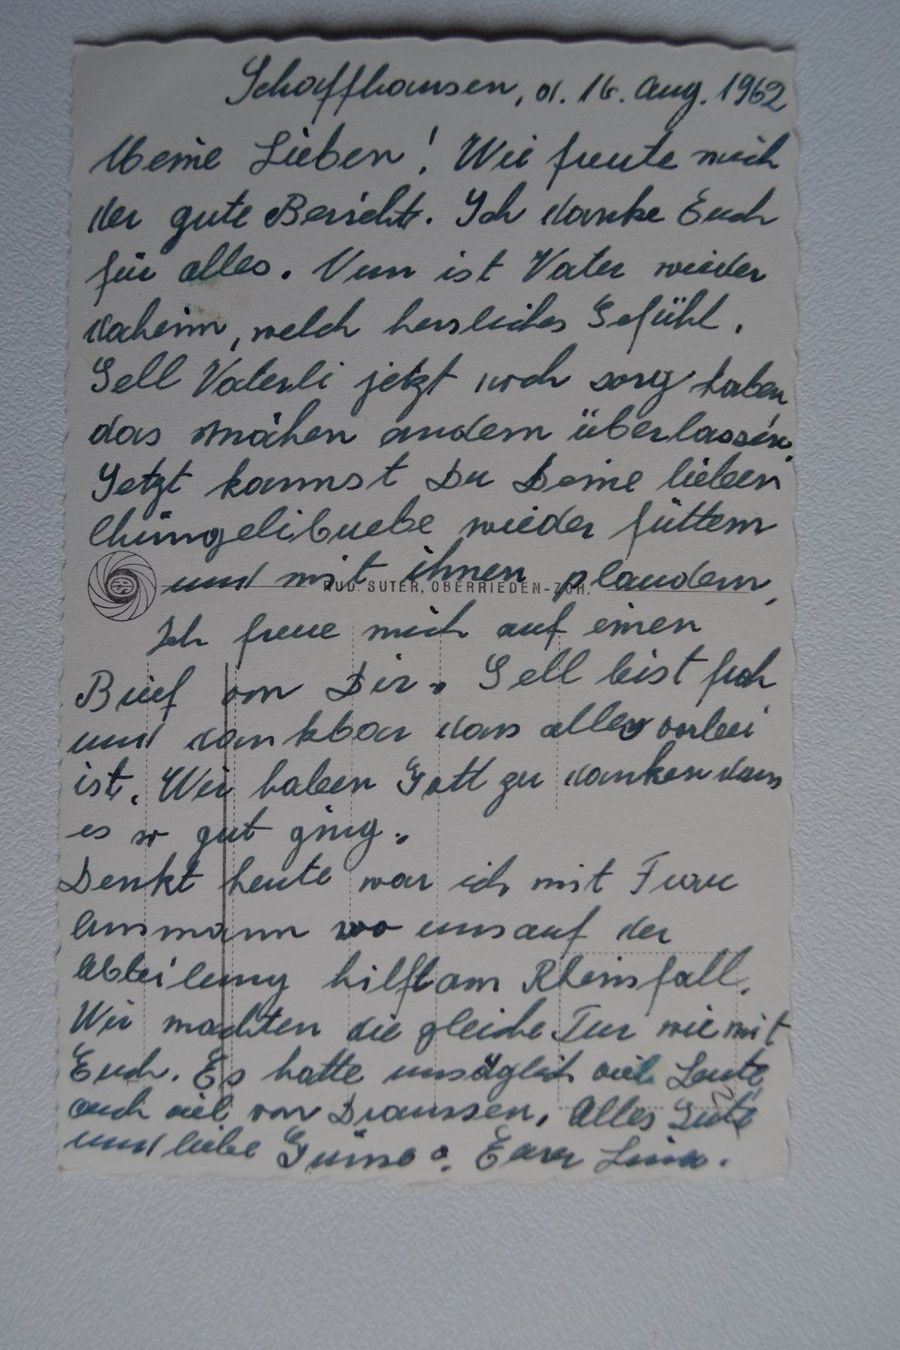 Schaffhausen, d. 16. Aug. 1962
Meine Lieben! Wie freute mich
der gute Bericht. Ich danke Euch
für alles. Nun ist Vater wieder
daheim, welch herrliches Gefühl.
Gell Vaterli jetzt noch sorg haben
das mähen andern überlassen.
Jetzt kannst Du Deine lieben
Chüngelibuebe wieder füttern
und mit ihnen plaudern,
RUD. SUTER, OBERRIEDEN-ZCH.
Ich freue mich auf einen
Brief von Dir. Gell bist froh
und dankbar dass alles vorbei
ist. Wir haben Gott zu danken dass
es so gut ging.
Denkt heute war ich mit Frau
wo uns auf der
Abteilung hilft am Rheinfall.
Wir machten die gleiche Tur wie mit
Euch. Es hatte unsäglich viel Leute
auch viel von Draussen. Alles Gute
und liebe Grüsse. Eure Lina.